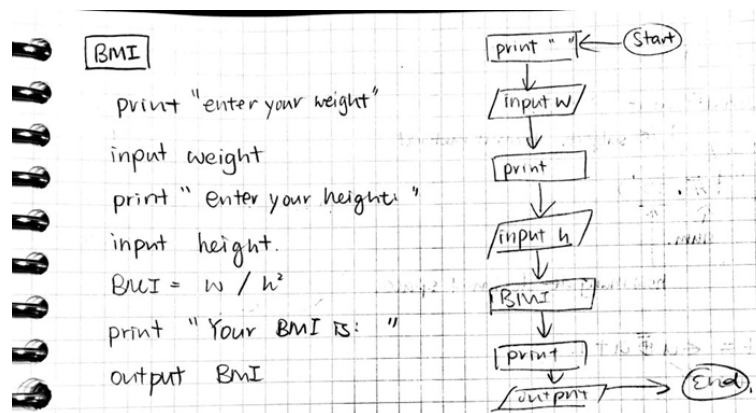 BMI
print "enter your weight"
input weight
print "enter your height: "
input height.
BMI = w / h²
print "Your BMI is: "
output BMI
Start
print " "
input w
print
input h
BMI
print
output
End.